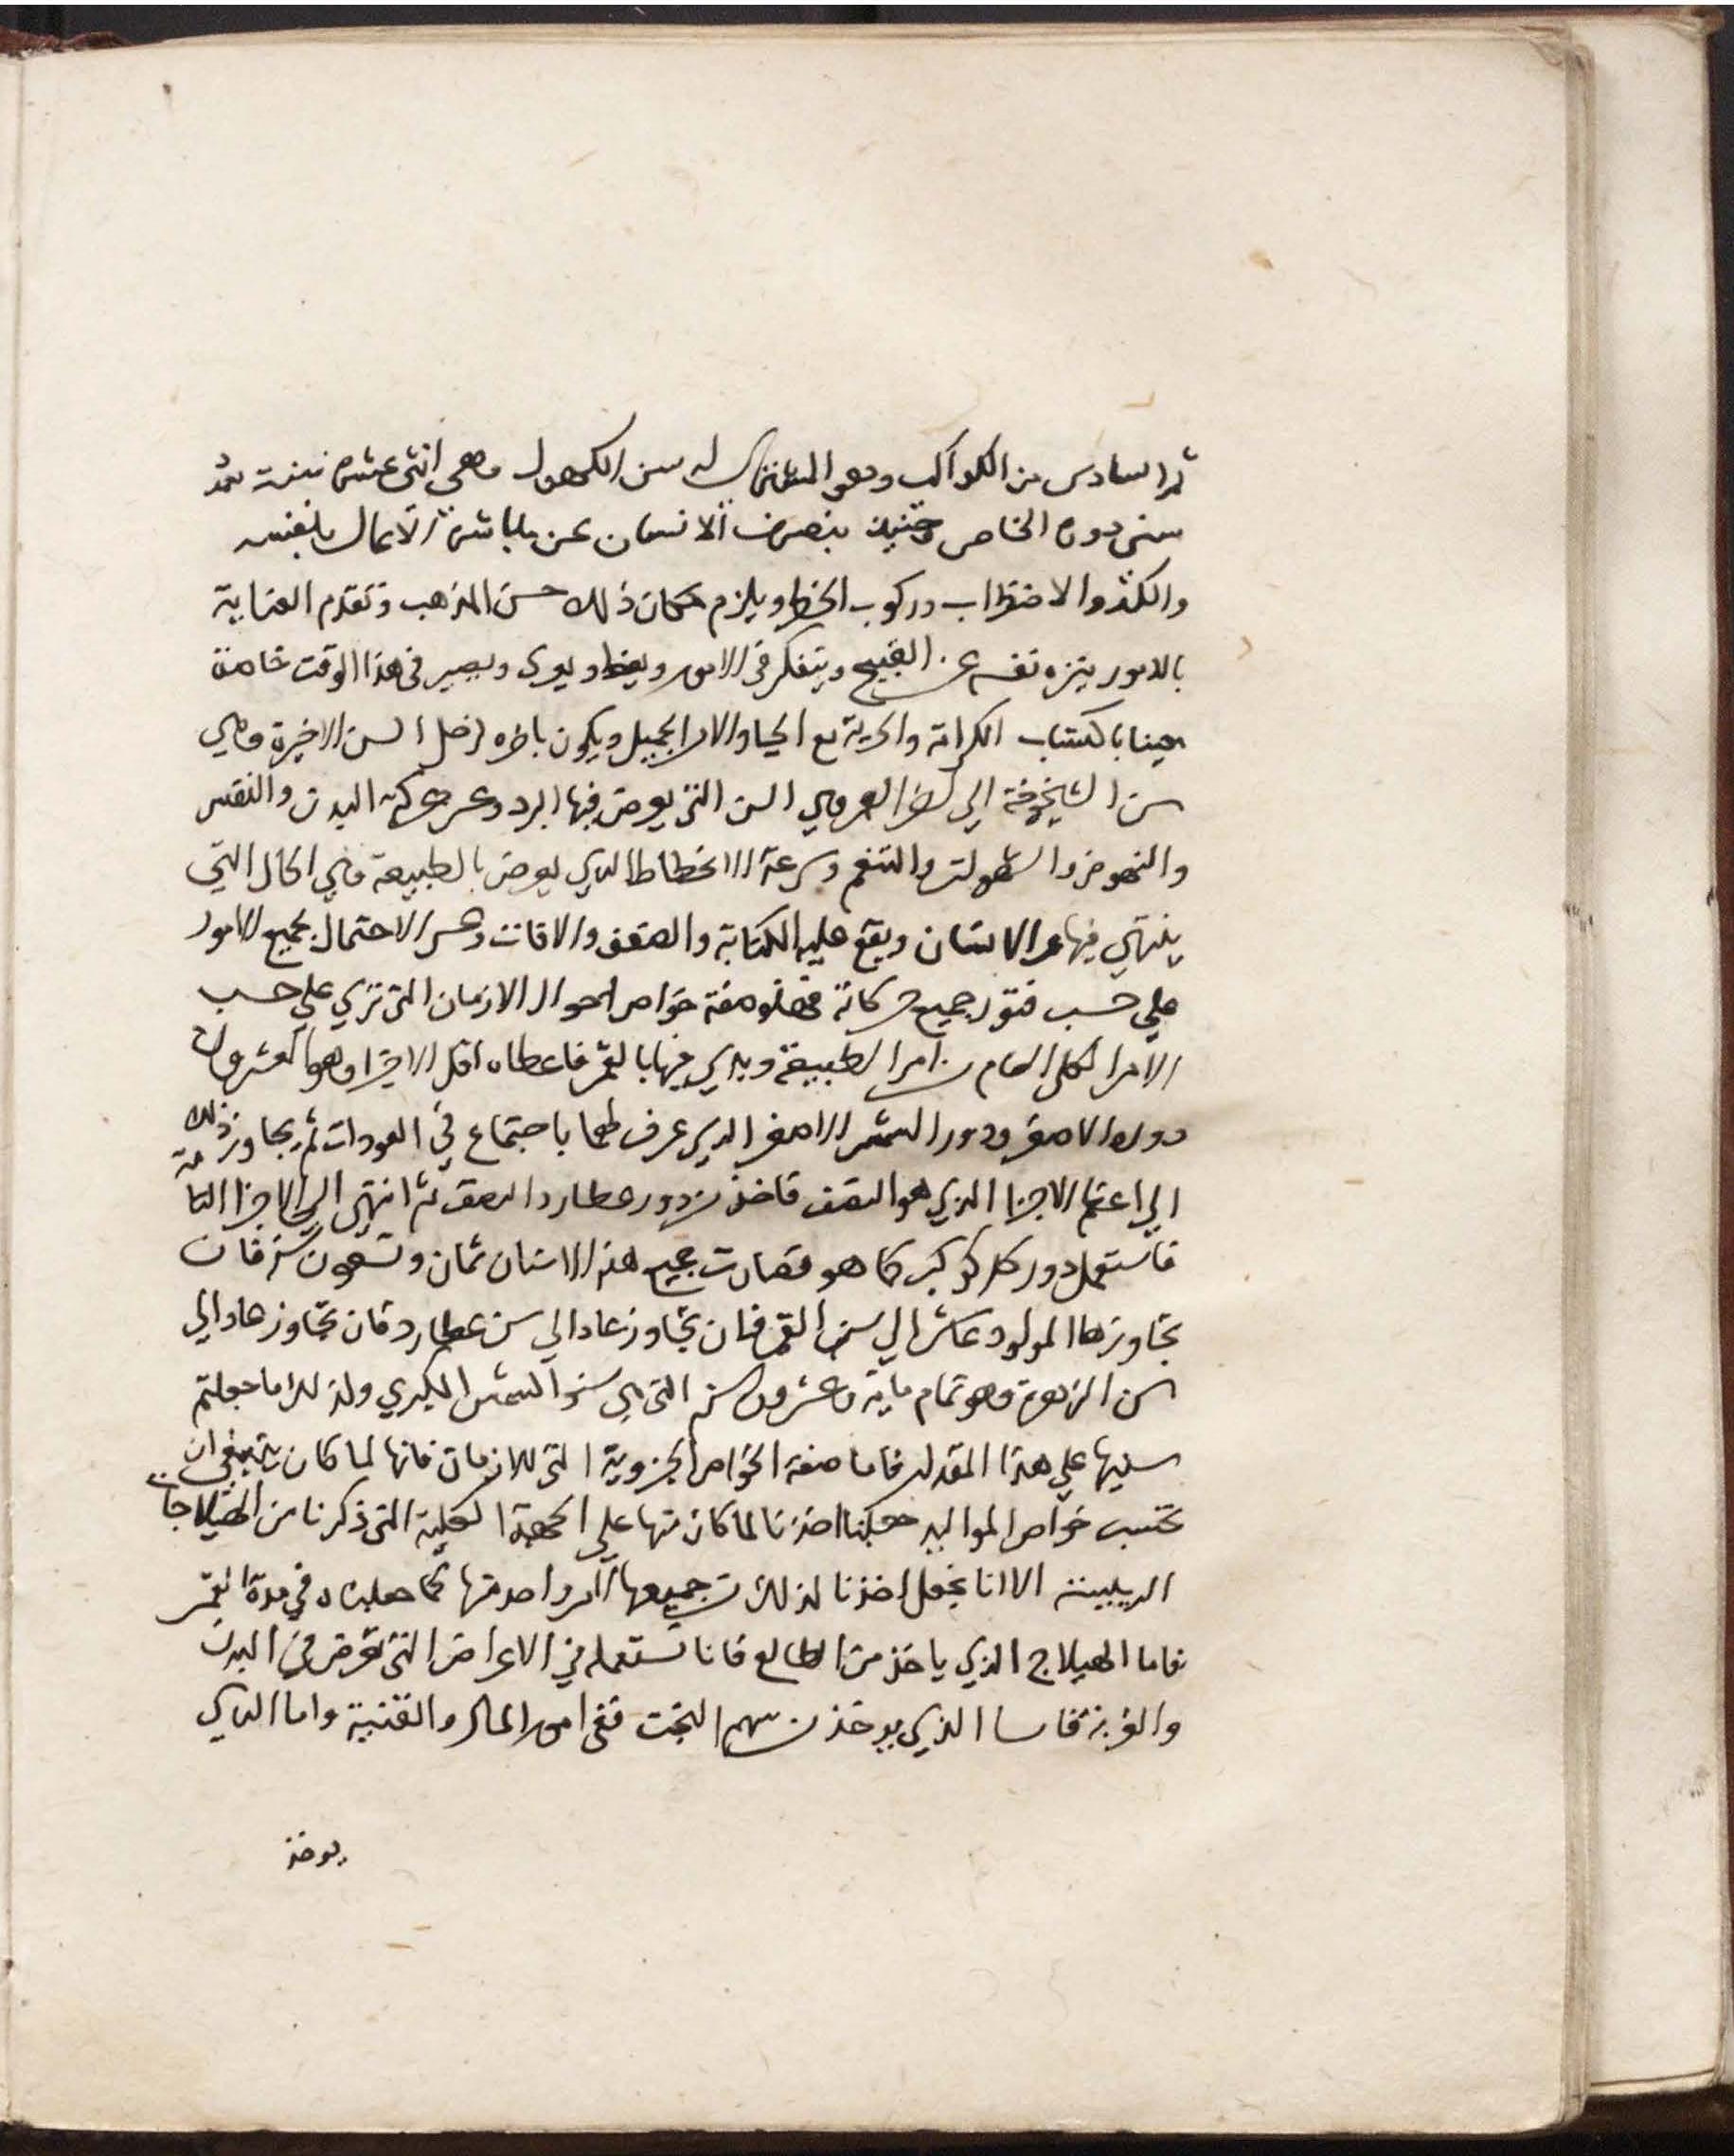 ثم السادس من الكواكب وهو المشتري له سن الكهول وهي اثنى عشرة سنة بعدد
سنى دوره الخاص وحينيذ ينصرف الانسان عن مباشرة الاعمال بنفسه
والكد والاضطراب وركوب الخطر ويلزم مكان ذلك حسن المذهب وتقدم العناية
بالامور ينزه نفسه عن القبيح ويتفكر في الامور ويعظ ويورى ويصير في هذا الوقت خاصة
معينا باكتساب الكرامة والحرية مع الحيا والامر الجميل ويكون باخره زحل السن الاخيرة وهي
سن الشيخوخة الي اخر العمر وهي السن التى يعرض فيها البرد وعسر حركة البدن والنفس
والنهوض والشهوات والتنعم وسرعة الانحطاط الذي يعرض بالطبيعة وهي الحال التي
ينتهي فيها عمر الانسان ويقع عليه الكتابة والضعف والافات وعسر الاحتمال بجميع الامور
علي حسب فتور جميع حركاته فهذه صفة خواص احوال الازمان التى ترى علي حسب
الامر الكلى العام من امر الطبيعة وبدي فيها بالقمر فاعطاه اقل الاجزا وهو العشرون
دوره الاصغر ودور الشمس الاصغر الذي عرف لهما باجتماع في العودات ثم تجاوز ذلك
الي اعظم الاجزا الذي هو النصف فاخذ من دور عطارد النصف ثم انتهى الي الاجزا التامة
فاستعمل دور كل كوكب كما هو فصارت جميع هذه الاسنان ثمان وتسعون سنة فان
تجاوزها المولود عاش الي سن القمر فان تجاوز عاد الي سن عطارد فان تجاوز عاد الي
سن الزهرة وهو تمام ماية وعشرون سنة التى هي سنو الشمس الكبري ولذلك ما جعلتم
سنيها علي هذا المقدار فاما صفة الخواص الجزوية التى للازمان فانها لما كان ينبغي ان
تحتسب خواص المواليد اخذنا لما كان منها علي الجهة الكلية التى ذكرنا من الهيلاجات
الرييسة الا انا نجعل اخذنا لذلك من جميعها لا من واحد منها كما جعلناه في مدة العمر
فاما الهيلاج الذي ياخذ من الطالع فانا نستعمله في الاعراض التى تعرض في البدن
والغربة فاما الذي يوخذ من سهم البخت ففي امور المال والقنية واما الذي
يوخذ